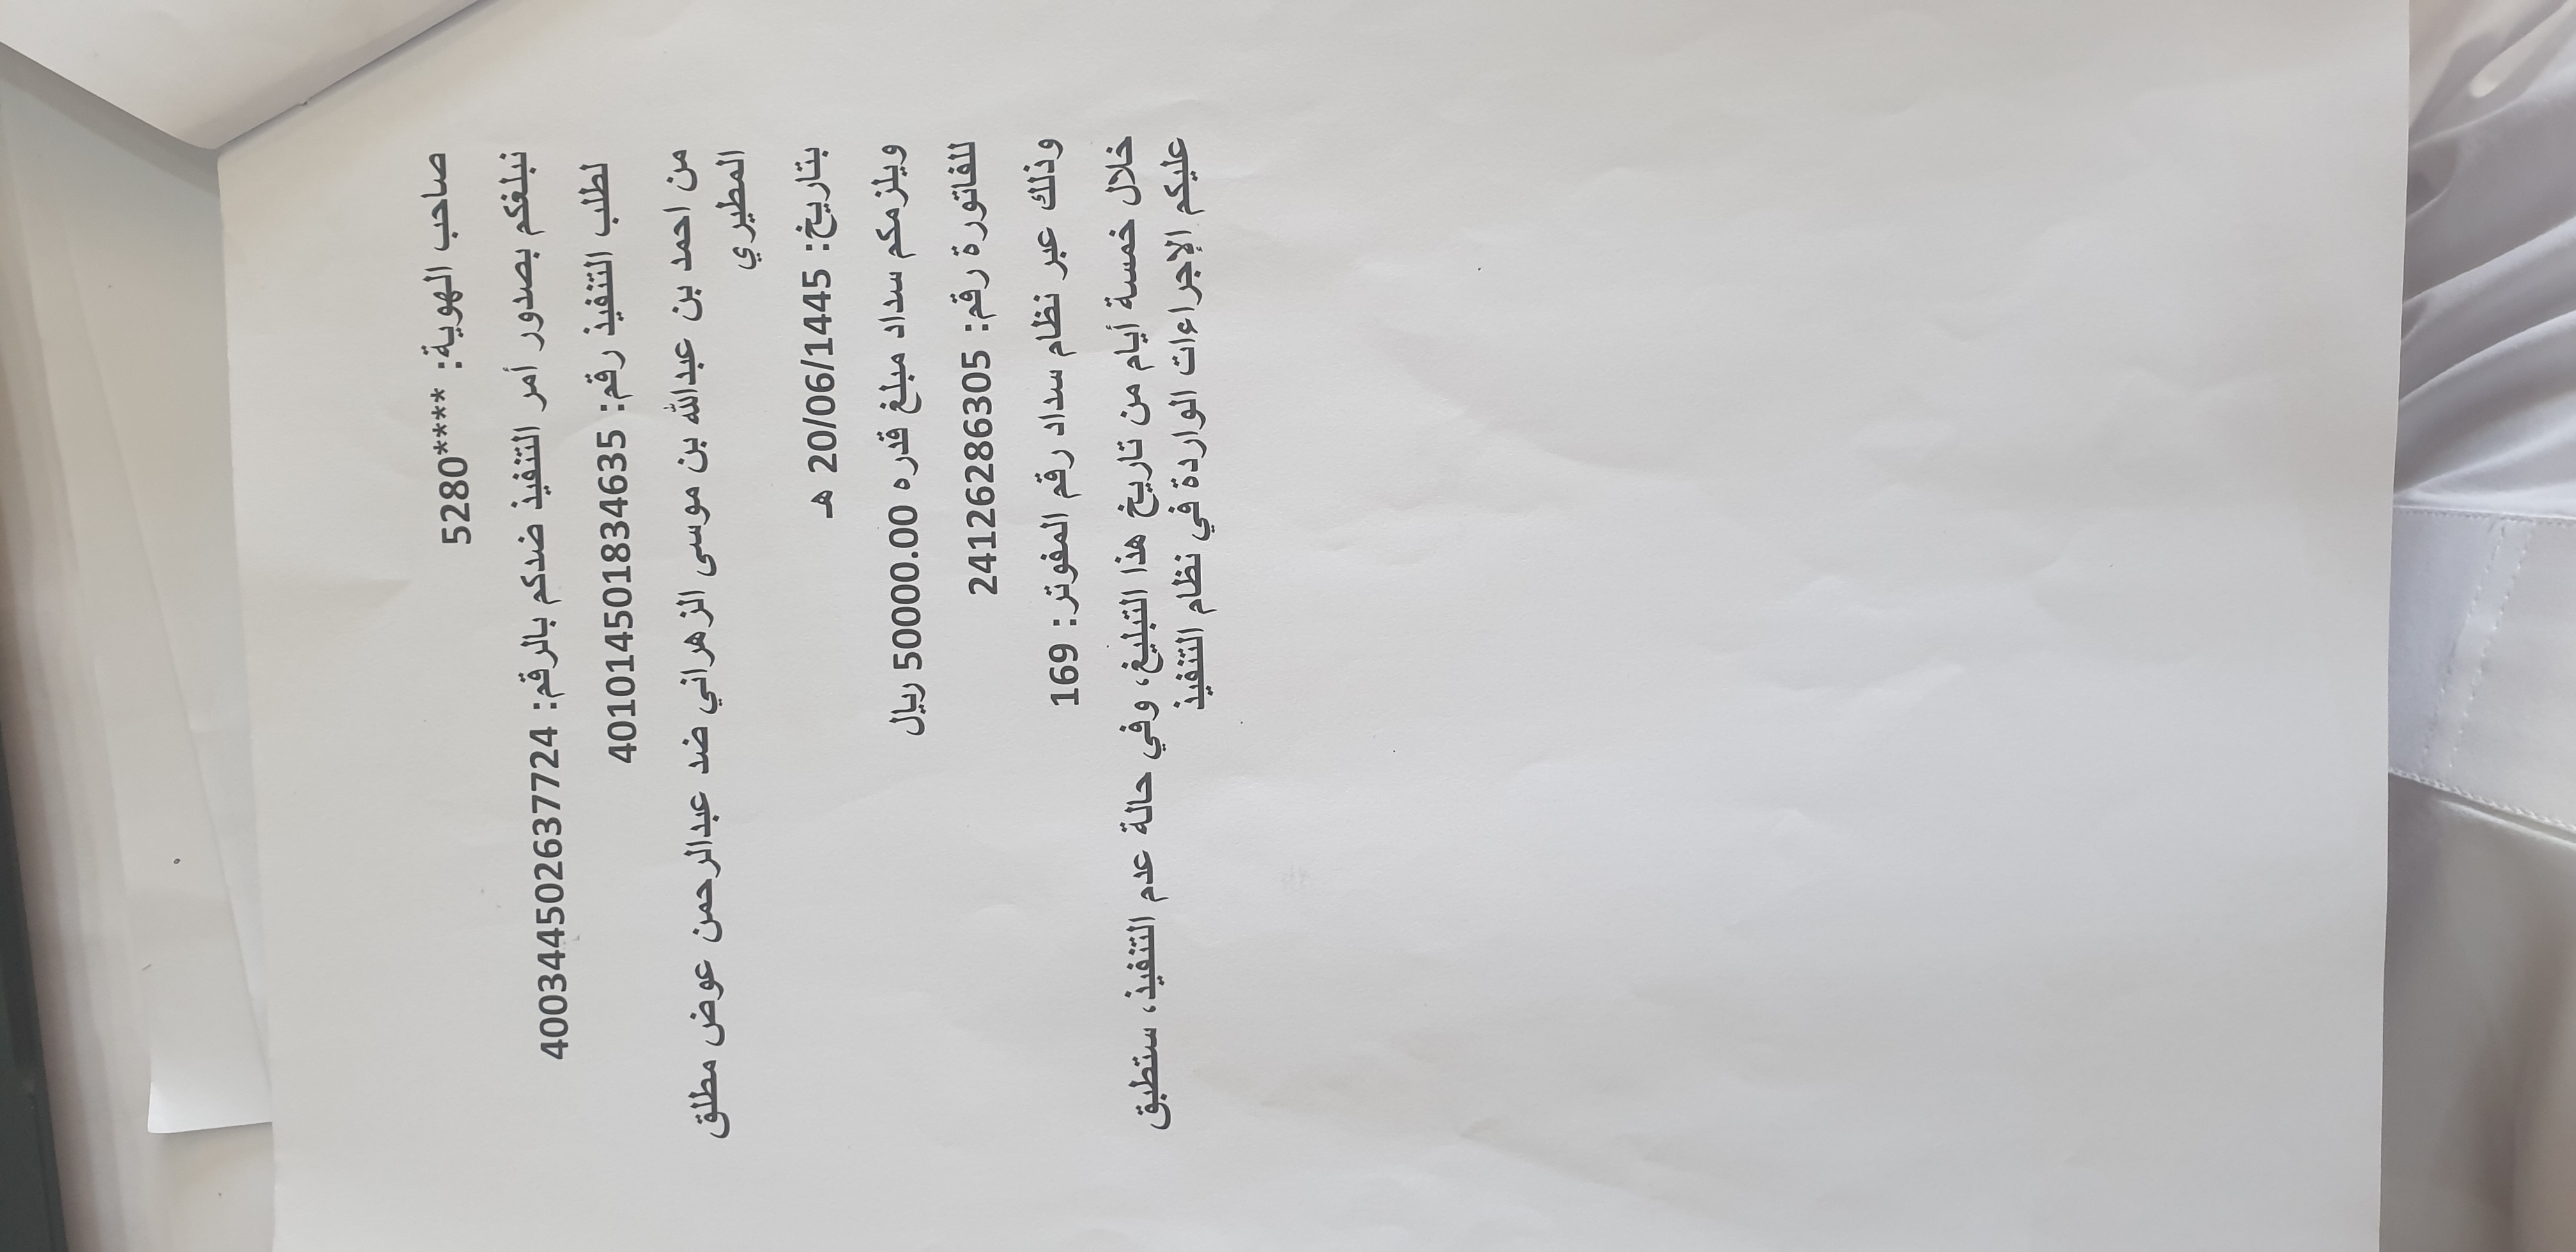 صاحب الهوية: ****5280
نبلغكم بصدور أمر التنفيذ ضدكم بالرقم: 400344502637724
لطلب التنفيذ رقم: 401014501834635
من احمد بن عبدالله بن موسى الزهراني ضد عبدالرحمن عوض مطلق
المطيري
بتاريخ: 20/06/1445 هـ
ويلزمكم سداد مبلغ قدره 50000.00 ريال
للفاتورة رقم: 24126286305
وذلك عبر نظام سداد رقم المفوتر: 169
خلال خمسة أيام من تاريخ هذا التبليغ، وفي حالة عدم التنفيذ، ستطبق
عليكم الإجراءات الواردة في نظام التنفيذ